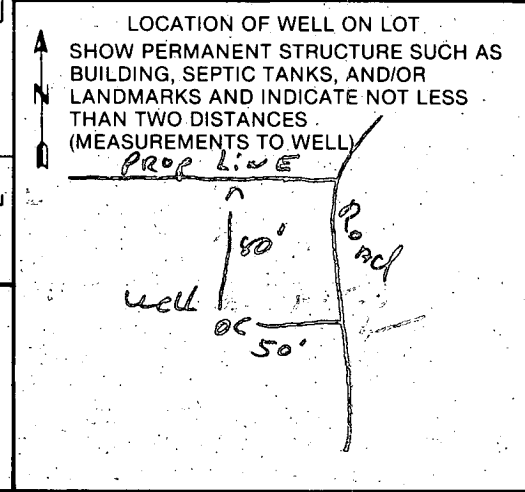 LOCATION OF WELL ON LOT
SHOW PERMANENT STRUCTURE SUCH AS
BUILDING, SEPTIC TANKS, AND/OR
LANDMARKS AND INDICATE NOT LESS
THAN TWO DISTANCES
(MEASUREMENTS TO WELL)
N
PROP LINE
Road
well
50'